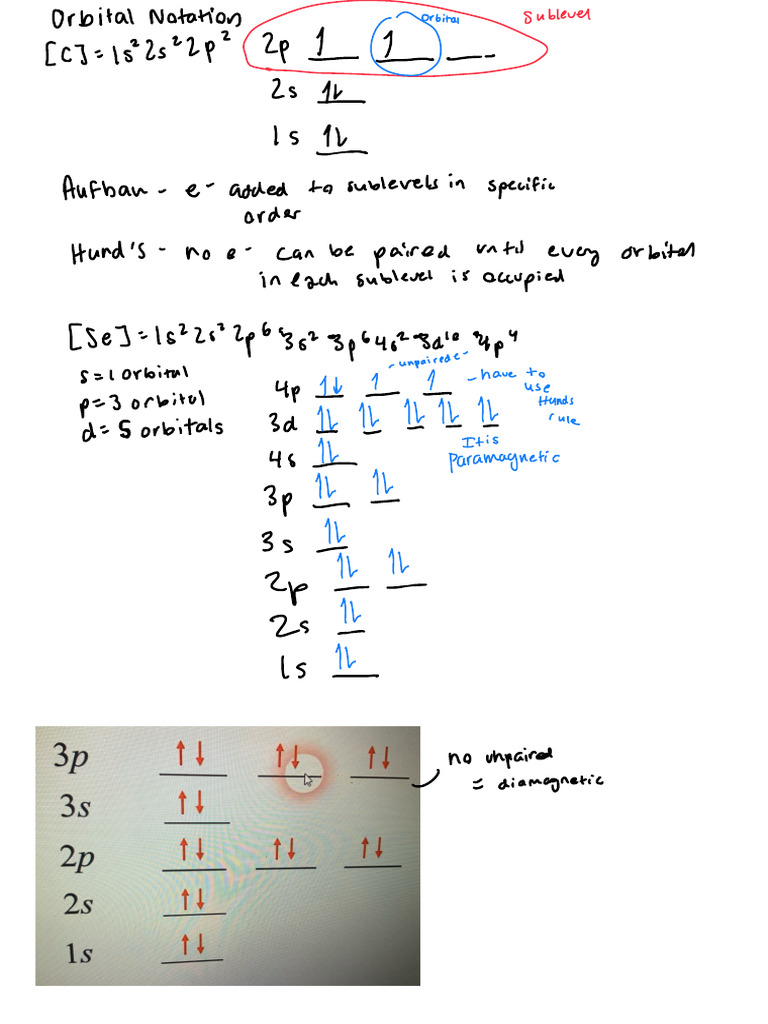 Orbital Notation
[C]=1s² 2s² 2p²
2p 1 1
Orbital
Sublevel
2s 1L
1s 1L
Aufbau - e- added to sublevels in specific
order
Hund's - no e- can be paired until every orbital
in each sublevel is occupied
[Se]=1s² 2s² 2p⁶ 3s² 3p⁶ 4s² 3d¹⁰ 4p⁴
s=1 orbital
p=3 orbital
d=5 orbitals
-unpaired e-
4p 1↓ 1 1
-have to
use
Hunds
rule
3d 1L 1L 1L 1L 1L
It is
paramagnetic
4s 1L
3p 1L 1L
3s 1L
2p 1L 1L
2s 1L
1s 1L
3p ↑↓ ↑↓ ↑↓
3s ↑↓
2p ↑↓ ↑↓ ↑↓
2s ↑↓
1s ↑↓
no unpaired
= diamagnetic